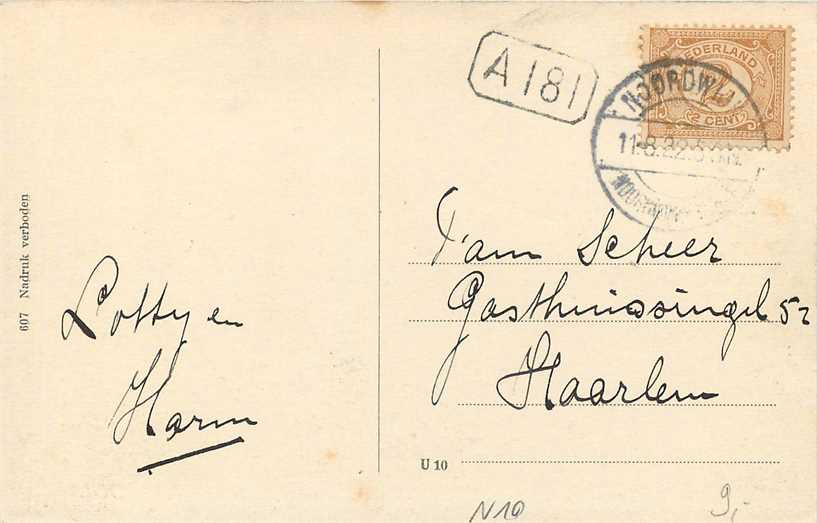 A 181
NEDERLAND
2 CENT
NOORDWIJ
11.8.22.5
607 Nadruk verboden
Lotty en
Harm
Fam Scheer
Gasthuissingel 52
Haarlem
U 10
N10
9,-